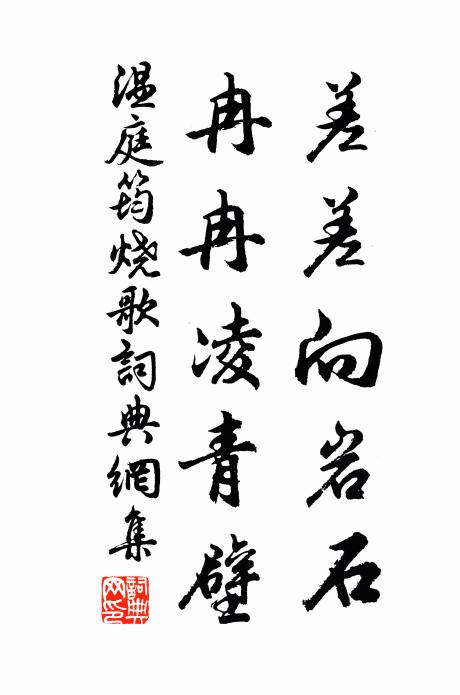 差差向岩石
冉冉凌青壁
温庭筠烧歌詞典網集
詞典网印